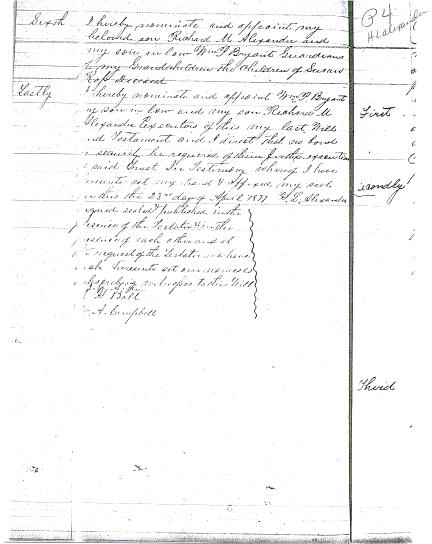 P 4
H L Alexander
Sixth I hereby nominate and appoint my
beloved son Richard M Alexander and
my son in law Wm P Bryant Guardians
of my Grandchildren the Children of Susan
Deceased
Lastly I hereby nominate and appoint Wm P. Bryant
my son in law and my son Richard M
Alexander Executors of this my last Will
and Testament and I direct that no bond
security be required of them in the execution
said trust In Testimony whereof I have
set my hand & affixed my seal
this the 23rd day of April 1877 H. L. Alexander
signed sealed & published in the
presence of the Testator & in the
presence of each other and at
request of the Testator we have
hereunto set our names as
witnesses to this Will
H Ball
A. Campbell
First
econdly
Third